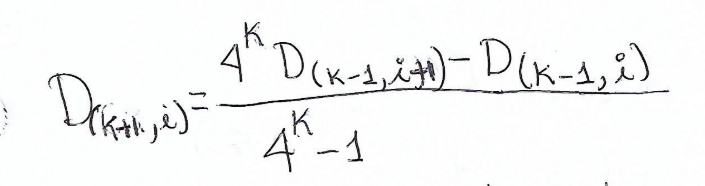 D(k+1,i) = \frac{4^K D(K-1,i+1) - D(K-1,i)}{4^K - 1}